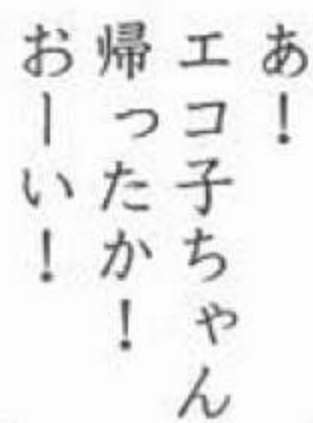 あ！
エコ子ちゃん
帰ったか！
おーい！